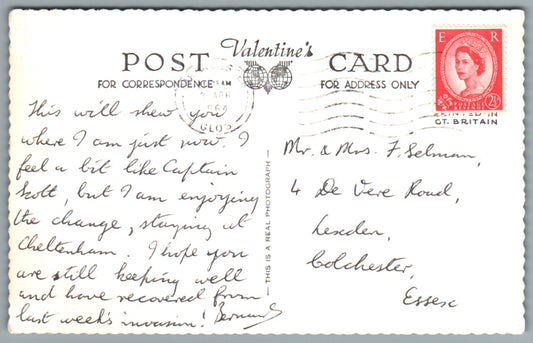 POST Valentine's CARD
FOR CORRESPONDENCE FOR ADDRESS ONLY
AM
APR
1964
GLOS
E R
POSTAGE REVENUE
2½D
PRINTED IN
GT. BRITAIN
This will shew you
where I am just now. I
feel a bit like Captain
Scott, but I am enjoying
the change, staying at
Cheltenham. I hope you
are still keeping well
and have recovered from
last week's invasion! Bernard
— THIS IS A REAL PHOTOGRAPH —
Mr. & Mrs. F. Selman,
4 De Vere Road,
Lexden,
Colchester,
Essex